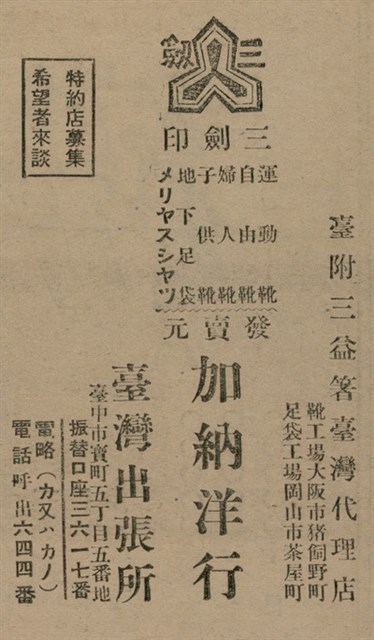 三劍
三劍印
運動靴
自由靴
婦人靴
子供靴
地下足袋
メリヤスシヤツ
發賣元
特約店募集
希望者來談
臺附三益箸臺灣代理店
靴工場大阪市猪飼野町
足袋工場岡山市茶屋町
加納洋行
臺灣出張所
臺中市寶町五丁目五番地
振替口座三六一七番
電略(カ又ハカノ)
電話呼出六四四番